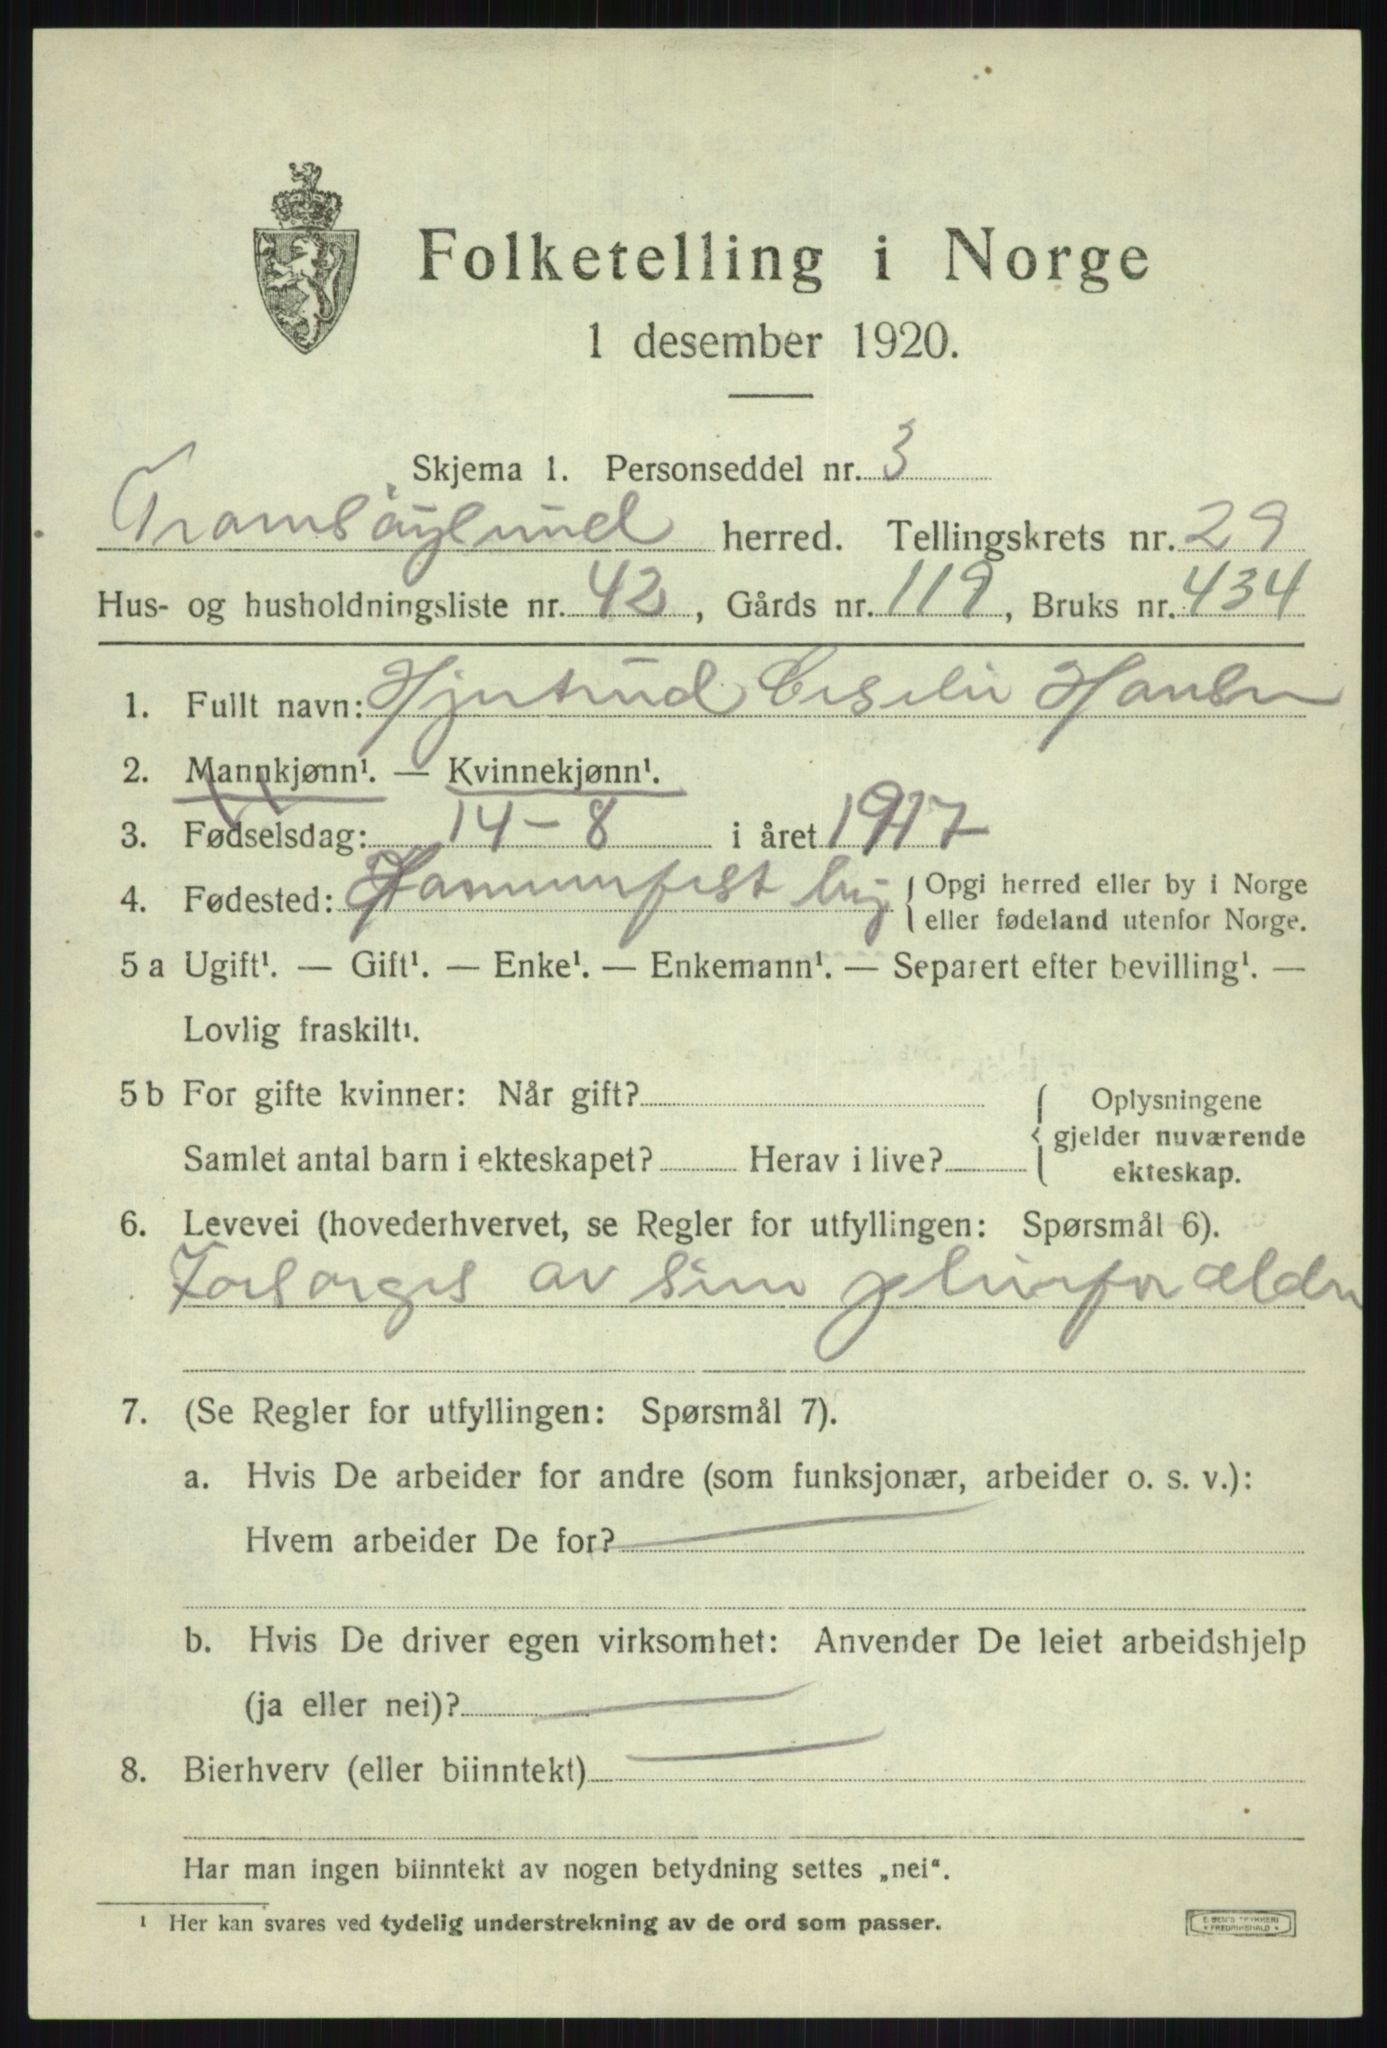 Folketelling i Norge
1 desember 1920.
Skjema 1. Personseddel nr. 3
Tromsøysund herred. Tellingskrets nr. 29
Hus- og husholdningsliste nr. 42, Gårds nr. 119, Bruks nr. 434
1. Fullt navn: Hjertrud Hansen
2. Mannkjønn¹. — Kvinnekjønn¹.
3. Fødselsdag: 14-8 i året 1917
4. Fødested: Hammerfest by { Opgi herred eller by i Norge
eller fødeland utenfor Norge.
5 a Ugift¹. — Gift¹. — Enke¹. — Enkemann¹. — Separert efter bevilling¹. —
Lovlig fraskilt¹.
5 b For gifte kvinner: Når gift? { Oplysningene
gjelder nuværende
Samlet antal barn i ekteskapet? Herav i live? ekteskap.
6. Levevei (hovederhvervet, se Regler for utfyllingen: Spørsmål 6).
Forsørges av sine pleieforældre
7. (Se Regler for utfyllingen: Spørsmål 7).
a. Hvis De arbeider for andre (som funksjonær, arbeider o. s. v.):
Hvem arbeider De for?
b. Hvis De driver egen virksomhet: Anvender De leiet arbeidshjelp
(ja eller nei)?
8. Bierhverv (eller biinntekt)
Har man ingen biinntekt av nogen betydning settes „nei“.
¹ Her kan svares ved tydelig understrekning av de ord som passer.